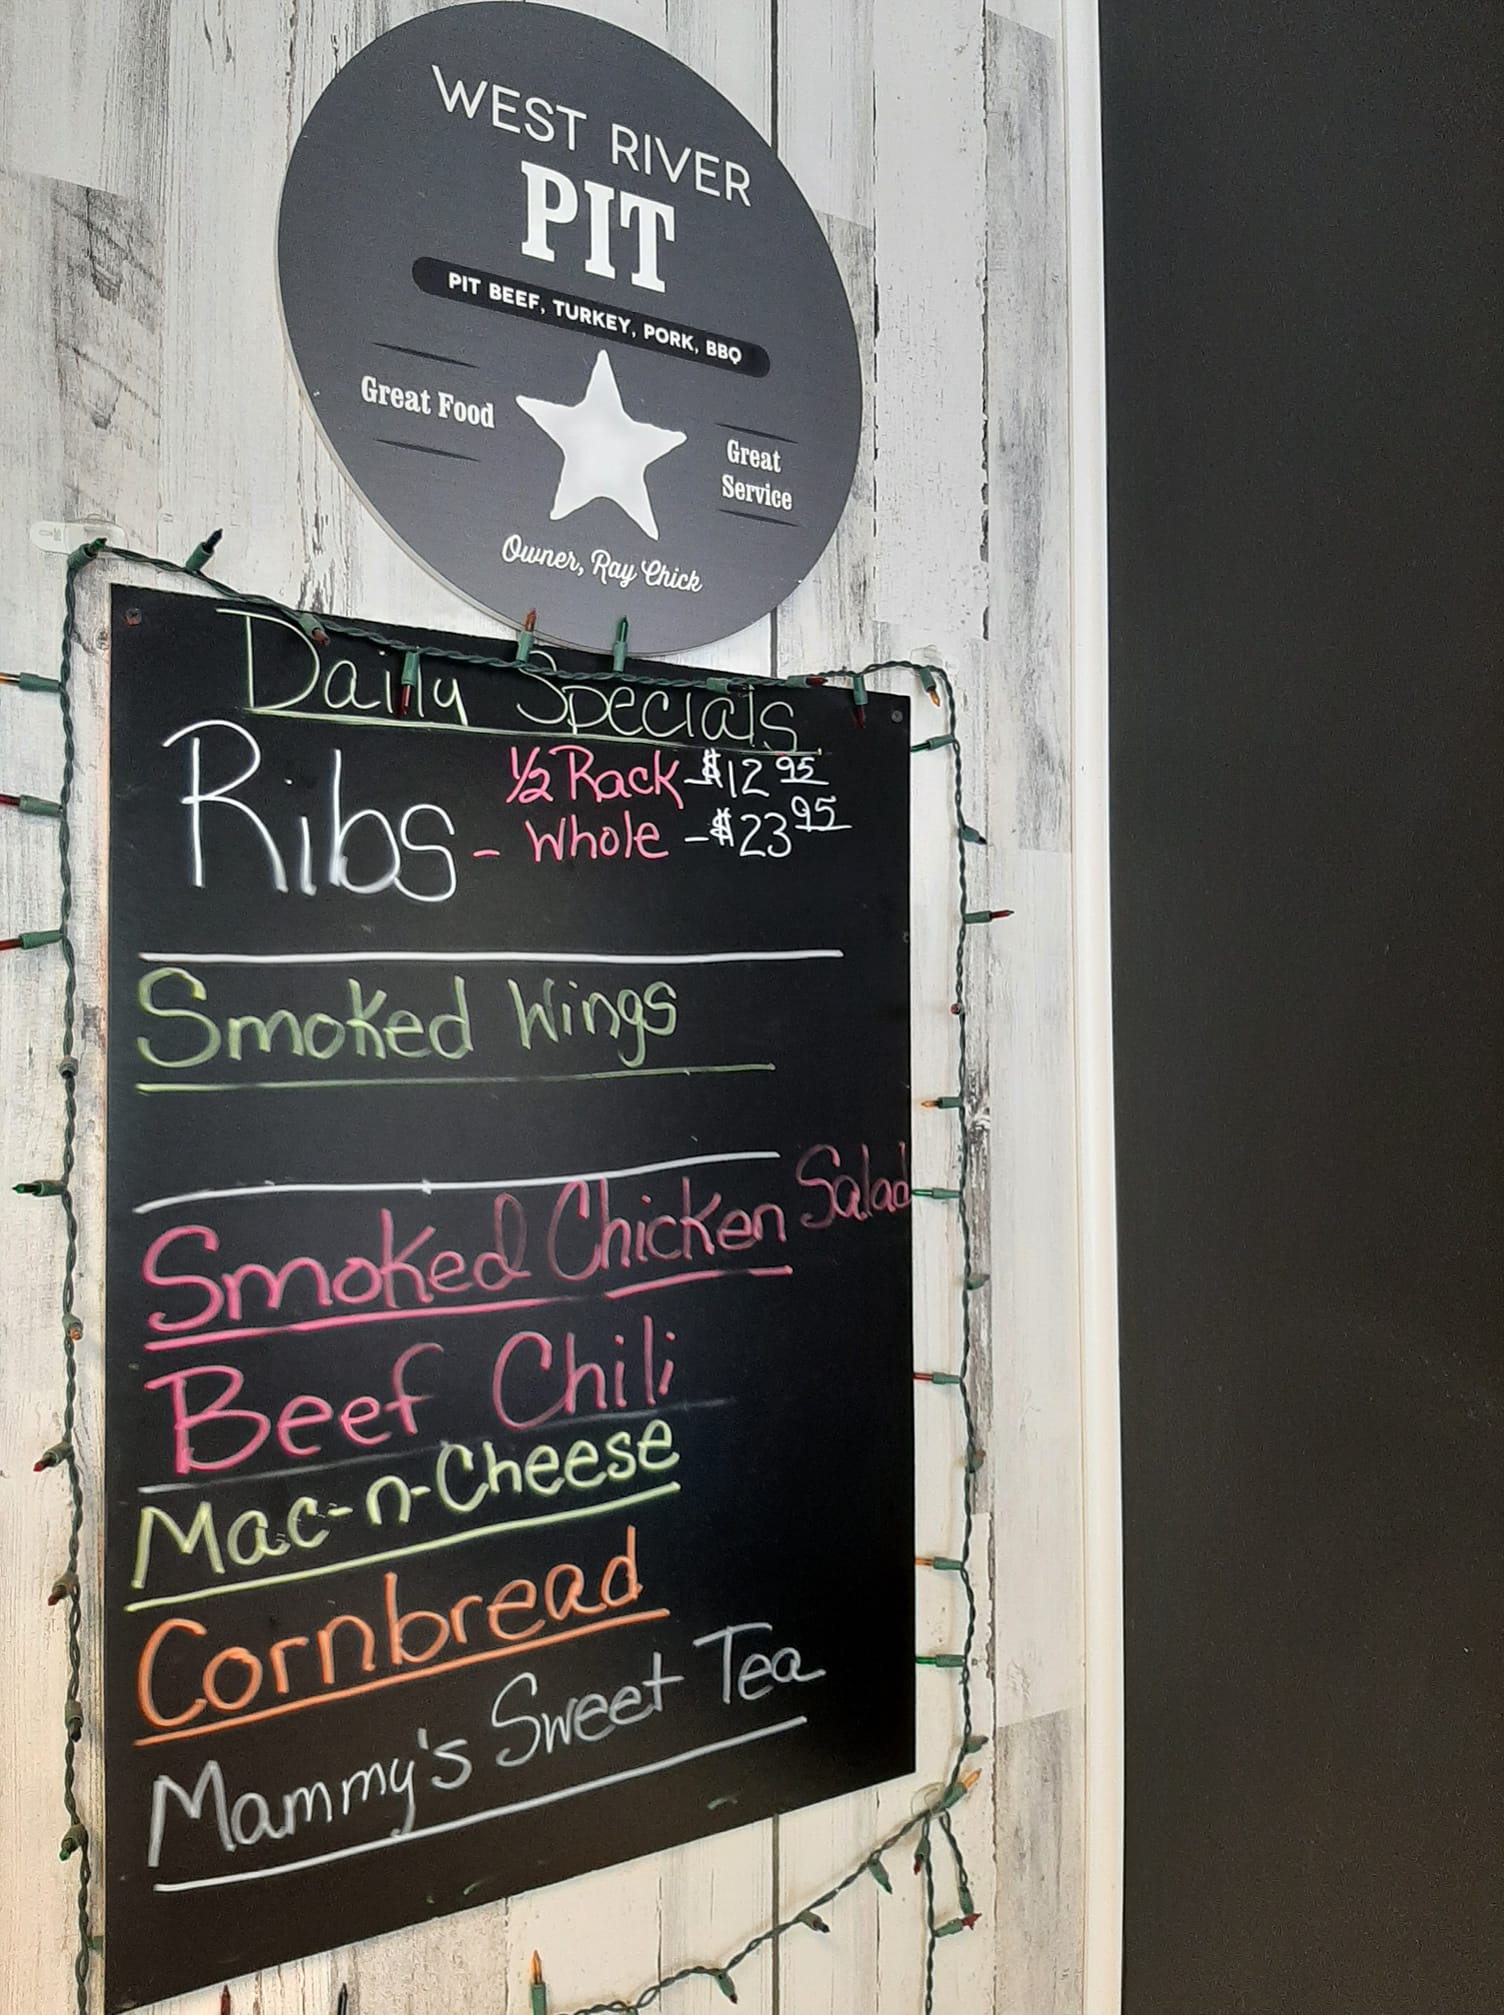 WEST RIVER
PIT
PIT BEEF, TURKEY, PORK, BBQ
Great Food
Great
Service
Owner, Ray Chick
Daily Specials
Ribs - 1/2 Rack - $12.95
Whole - $23.95
Smoked Wings
Smoked Chicken Salad
Beef Chili
Mac-n-Cheese
Cornbread
Mammy's Sweet Tea